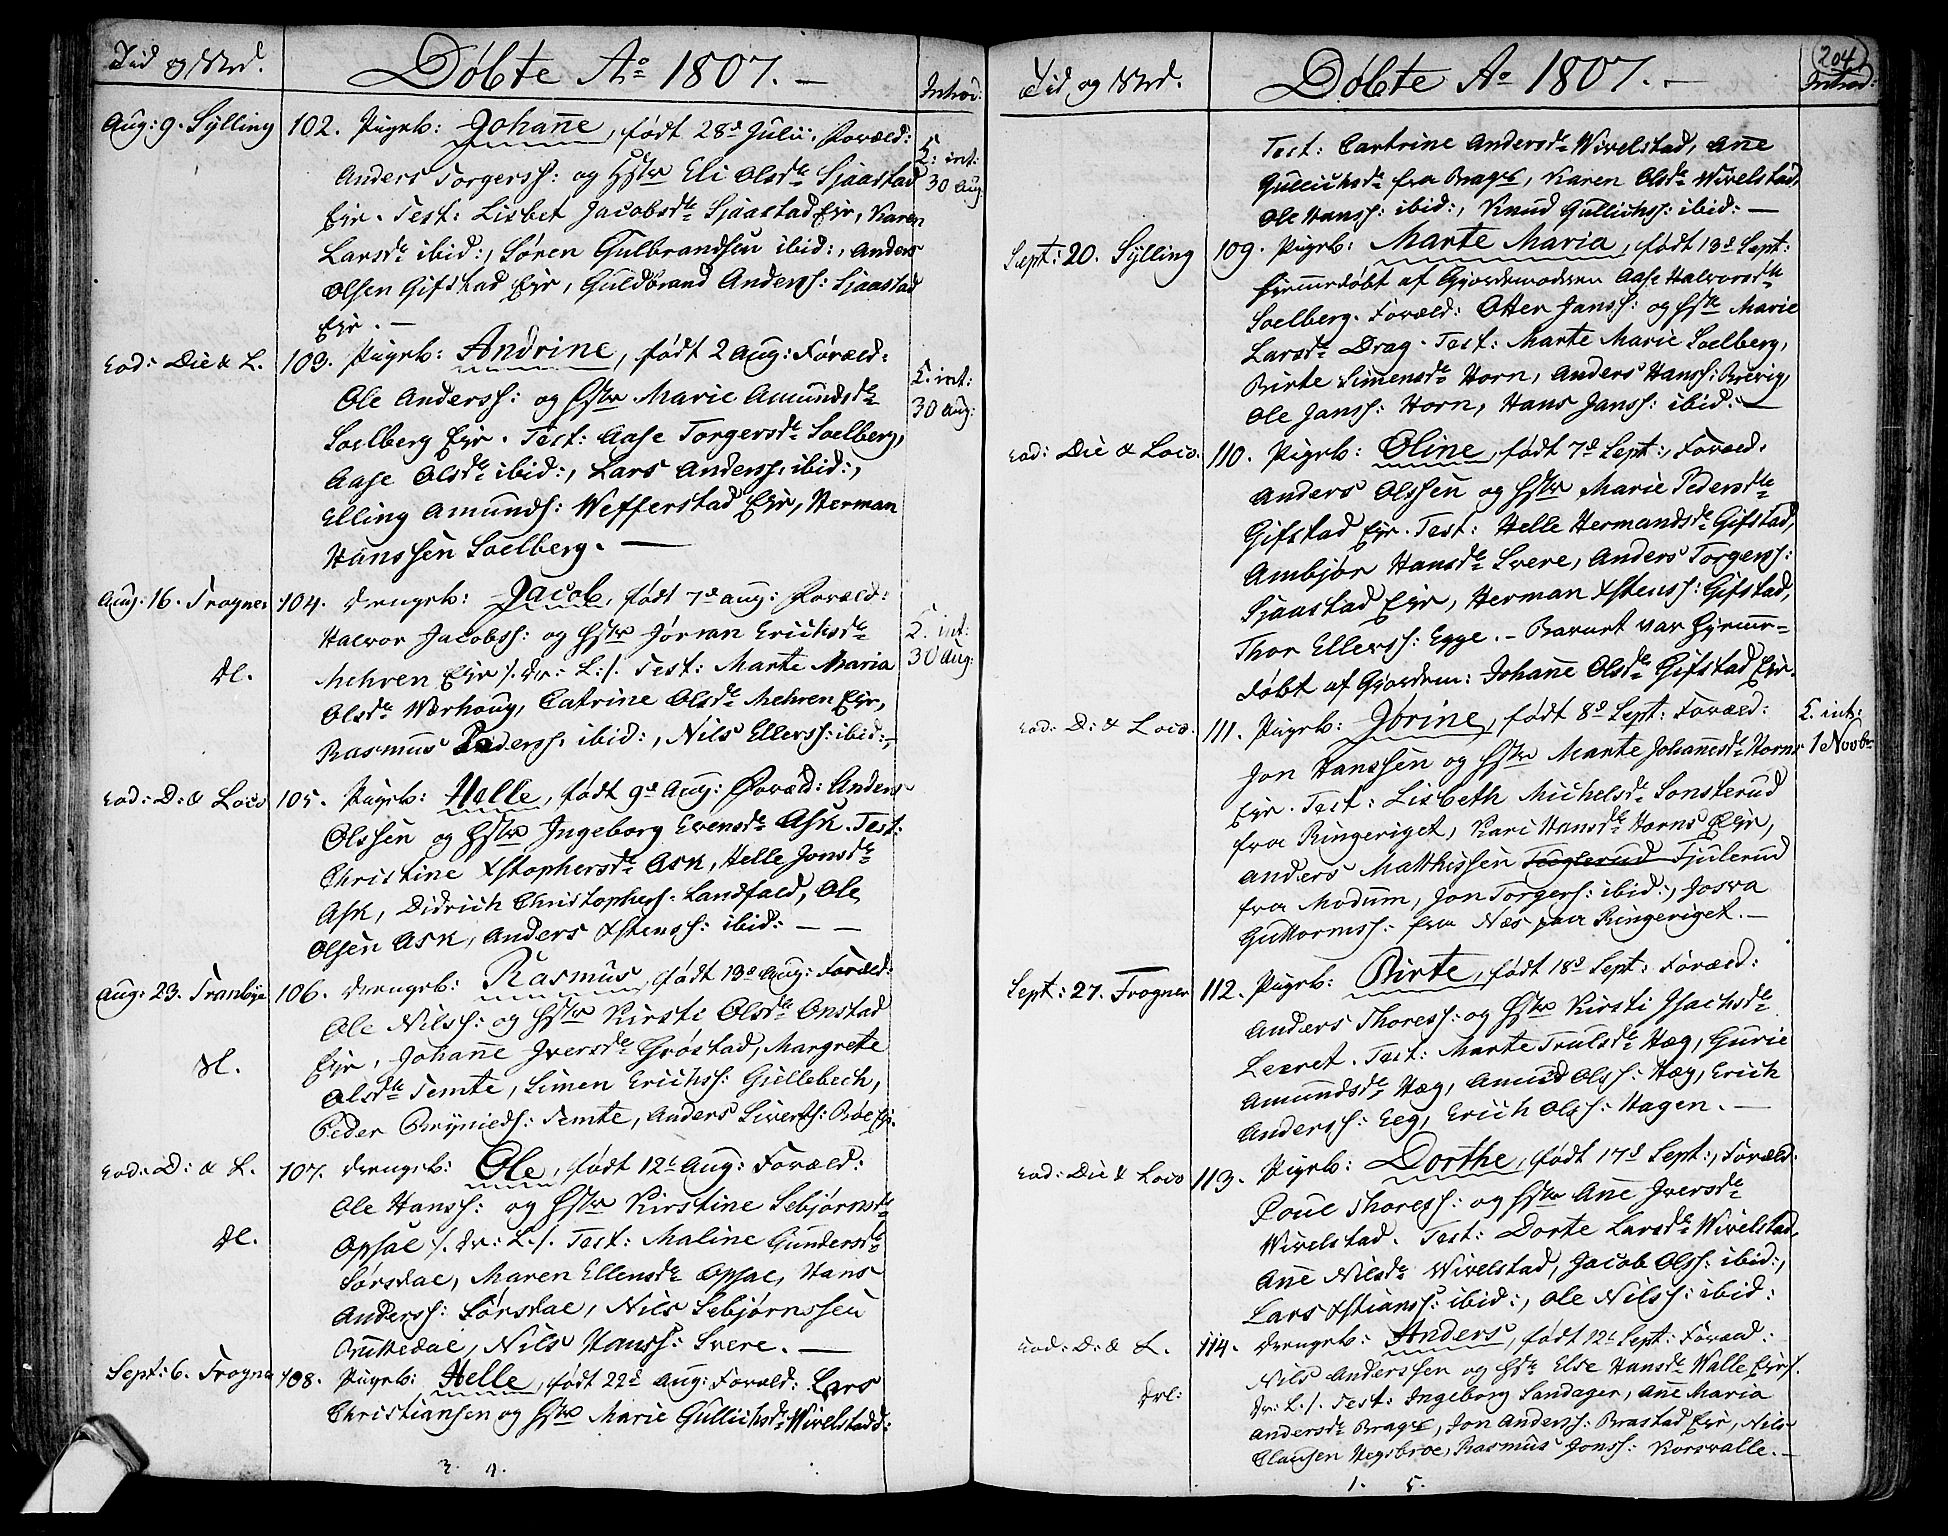 Tid og Sted.
Døbte Ao 1807. —
Introd:
Aug: 9. Sylling
102. Pigeb: Johanne, født 28de Julii. Foræld:
Anders Torgerss: og Hstr Eli Olsdtr Sjaastad
Eje. Test: Lisbet Jacobsdtr Sjaastad Eje, Karen
Larsdtr ibid:, Søren Gulbrandsen ibid:, Anders
Olsen Gifstad Eje, Guldbrand Anderss: Sjaastad
Eje. —
int:
30 Aug:
Eod: Die & L.
103. Pigeb: Andrine, født 2 Aug: Foræld:
Ole Anderss: og Hstr Marie Amundsdtr
Solberg Eje. Test: Aase Torgersdtr Solberg,
Aase Olsdtr ibid:, Lars Anderss: ibid:,
Elling Amunds: Wefferstad Eje, Herman
Hanssen Solberg. —
int:
30 Aug:
Aug: 16. Frogner
104. Drengeb: Jacob, født 7de Aug: Foræld:
Halvor Jacobss: og Hstr Jørran Erichsdtr
Mehren Eje /. Dr: L: /. Test: Marte Maria
Olsdtr Werhoug, Catrine Olsdtr Mehren Eje,
Rasmus Pederss: ibid:, Nils Ellerss: ibid:,
dl.
int:
30 Aug:
Eod: D: & Loco
105. Pigeb: Helle, født 9de Aug: Foræld: Anders
Olssen og Hstr Ingeborg Evensdtr Ask. Test:
Christine Xstophersdtr Ask, Helle Jonsdtr
Ask, Didrich Christophers: Landfald, Ole
Olsen Ask, Anders Xstenss: ibid: — —
Aug: 23. Tranbye
106. Drengeb: Rasmus, født 13de Aug: Foræld:
Ole Nilss: og Hstr Kirsti Olsdtr Onstad
Eje, Johanne Iversdtr Grøstad, Margrete
Olsdtr Temte, Simen Erichss: Gjellebech,
Peder Brynieds: Temte, Anders Siverts: Bøe Eje.
dl.
Eod: D: & L.
107. Drengeb: Ole, født 12te Aug: Foræld:
Ole Hanss: og Hstr Kirstine Sebjørnsdtr
Opsal /. Dr: L: /. Test: Maline Gundersdtr
Sørsdal, Maren Ellensdtr Opsal, Hans
Anderss: Sørsdal, Nils Sebjørnssen
Buttedal, Nils Hanss: Svere. —
dl.
Sept: 6. Frogner
108. Pigeb: Helle, født 22de Aug: Foræld: Lars
Christiansen og Hstr Marie Gullichsdtr Wivelstad:
3. 4.
204
Tid og Sted.
Døbte Ao 1807. —
Introd:
Test: Cartrine Andersdtr Wivelstad, Ane
Gullichsdtr fra Brags, Karen Olsdtr Wivelstad,
Ole Hanss: ibid:, Knud Gullichss: ibid: —
Sept: 20. Sylling
109. Pigeb: Marte Maria, født 13de Sept:
hjemmedøbt af Gjordemoderen Aase Halvorsdtr
Solberg. Foræld: Otter Janss: og Hstr Marie
Larsdtr Drag. Test: Marte Marie Solberg,
Birte Simensdtr Horn, Anders Hanss: Brevig,
Ole Janss: Horn, Hans Janss: ibid: —
Eod: Die & Loco.
110. Pigeb: Oline, født 7de Sept:, Foræld.
Anders Olssen og Hstr Marie Pedersdtr
Gifstad Eje. Test: Helle Hermandsdtr Gifstad,
Ambjør Hansdtr Svere, Anders Torgerss:
Sjaastad Eje, Herman Xstenss: Gifstad,
Thor Ellerss: Egge. — Barnet var hjemme-
døbt af Gjordem: Johanne Olsdtr Gifstad Eje.
Eod: D: & Loco.
111. Pigeb: Jørine, født 8de Sept: Foræld:
Jon Hanssen og Hstr Marte Johannesdtr Horns
Eje. Test: Lisbeth Michelsdtr Sønsterud
fra Ringeriget, Kari Hansdtr Horns Eje,
Anders Matthissen Tjulerud
fra Modum, Jon Torgerss: ibid:, Josva
Guttormss: fra Næs paa Ringeriget. —
int:
1 Novbr
Sept: 27. Frogner
112. Pigeb: Birte, født 18de Sept: Foræld:
Anders Thoress: og Hstr Kirsti Isachsdtr
Leeret. Test: Marte Trulsdtr Hæg, Gurie
Amundsdtr Hæg, Amund Olss: Hæg, Erich
Anderss: Eeg, Erich Olss: Hagen. —
Eod: Die & Loco
113. Pigeb: Dorthe, født 17de Sept:, Foræld:
Poul Thoress: og Hstr Ane Iversdtr
Wivelstad. Test: Dorte Larsdtr Wivelstad,
Ane Nilsdtr Wivelstad, Jacob Olss: ibid:,
Lars Xstianss: ibid:, Ole Nilss: ibid:
Eod: D: & L.
114. Drengeb: Anders, født 12te Sept: Foræld:
Nils Anderssen og Hstr Else Hansdtr Walle Eje /.
Dr: L: /. Test: Ingeborg Sandager, Ane Maria
Andersdtr Brags, Jon Anderss: Brastad Eje, Nils
Clausen Hegsbroe, Rasmus Jonss: Korsvalle. —
1. 5.